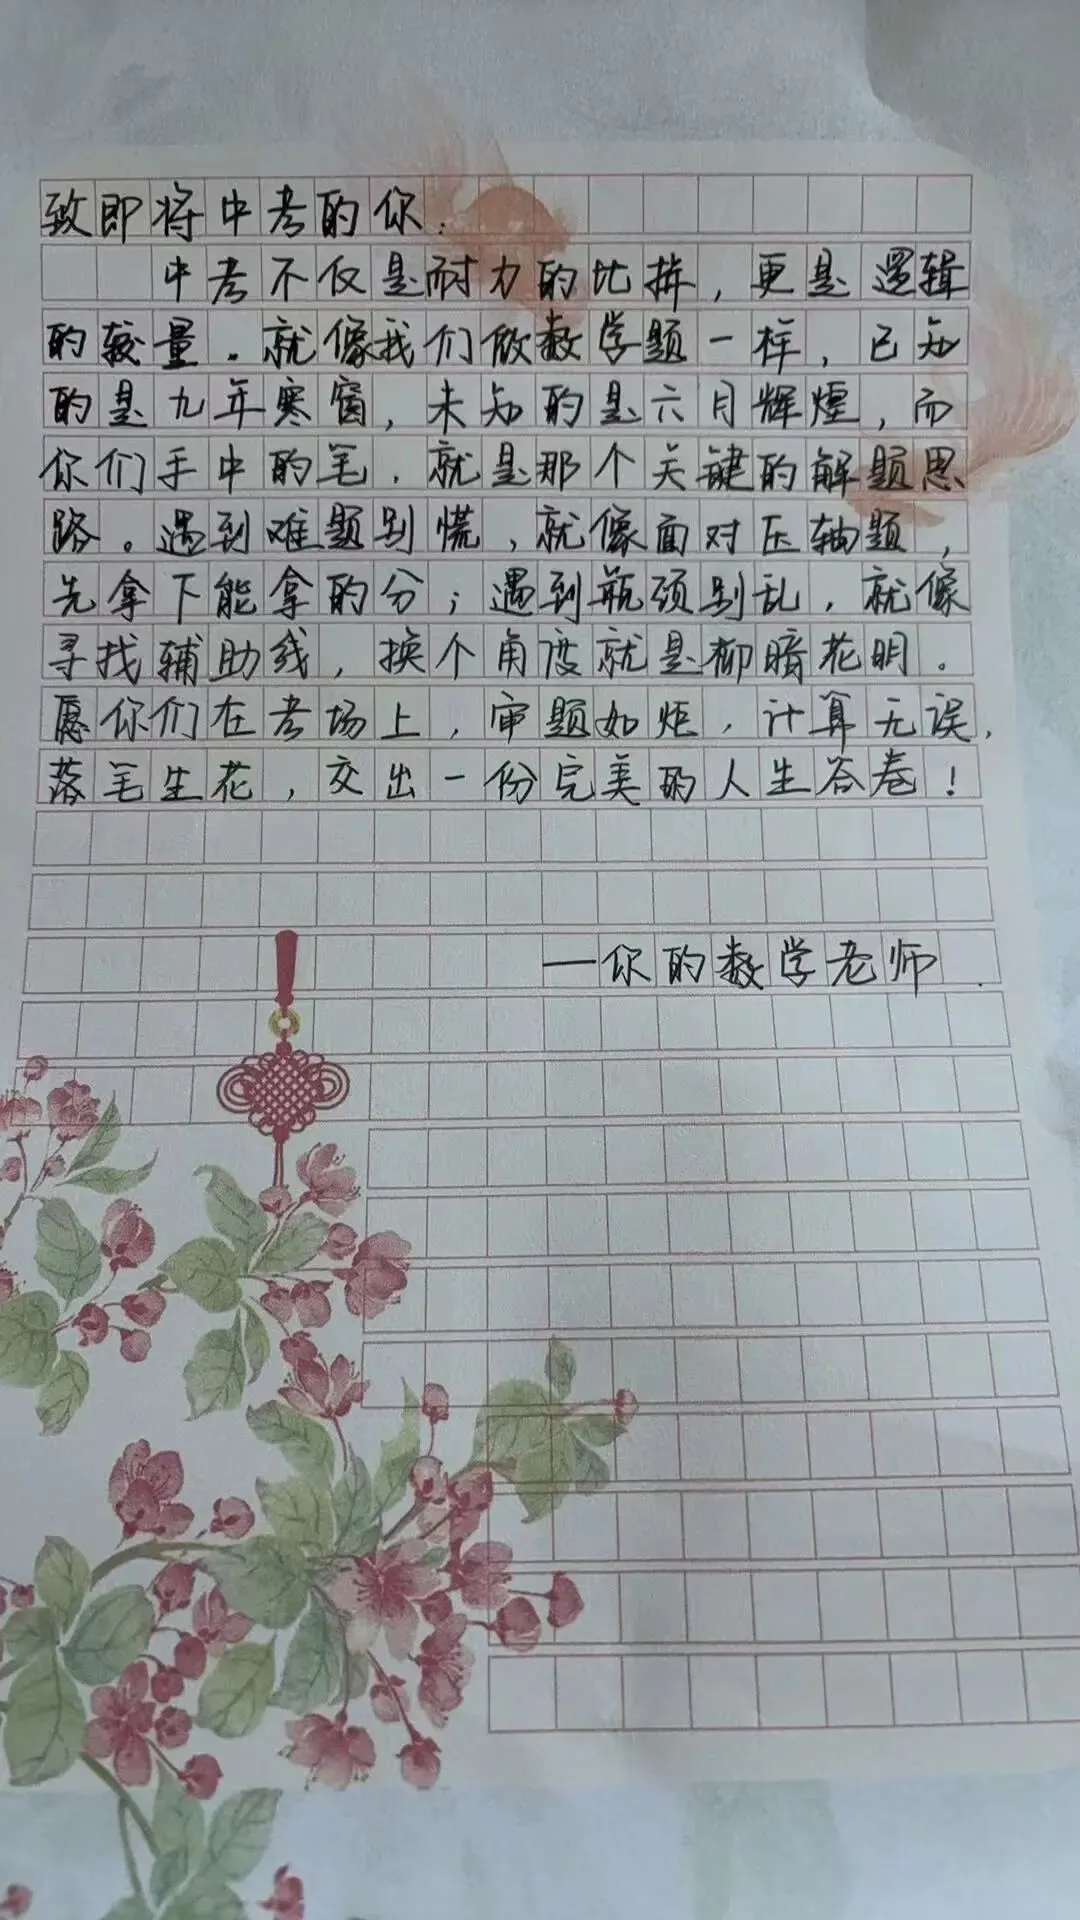 致即将中考的你：
中考不仅是耐力的比拚，更是逻辑
的较量。就像我们做数学题一样，已知
的是九年寒窗，未知的是六月辉煌，而
你们手中的笔，就是那个关键的解题思
路。遇到难题别慌，就像面对压轴题，
先拿下能拿的分；遇到瓶颈别乱，就像
寻找辅助线，换个角度就是柳暗花明。
愿你们在考场上，审题如炬，计算无误，
落笔生花，交出一份完美的人生答卷！
—你的数学老师.